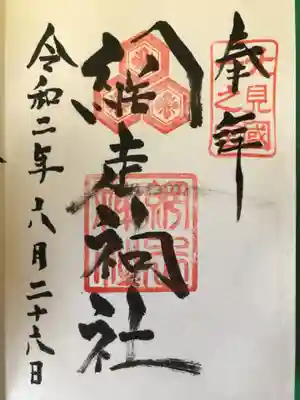 奉拝
北見國
網走神社
令和二年八月二十六日